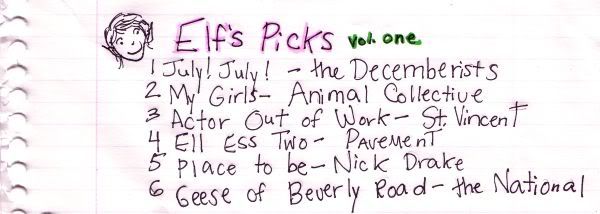 Elf's Picks Vol. one
1 July! July! - the Decemberists
2 My Girls - Animal Collective
3 Actor Out of Work - St. Vincent
4 Ell Ess Two - Pavement
5 Place to be - Nick Drake
6 Geese of Beverly Road - the National